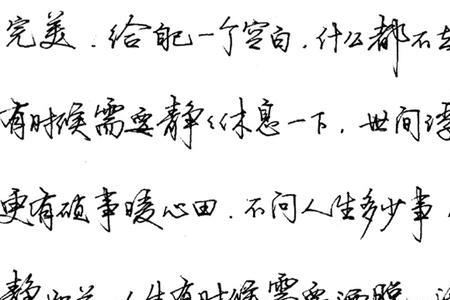 完美．给自己一个空白，什么都不去
有时候需要静静休息一下．世间浮
更有琐事暖心田．不问人生多少事，
静如兰，人生有时候需要洒脱，